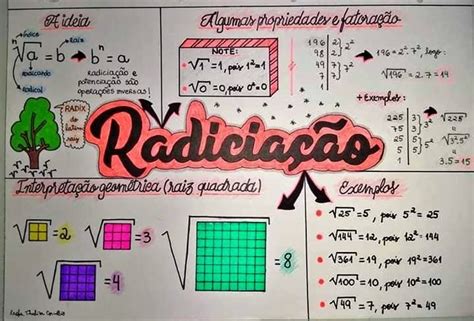 A ideia
índice
Raiz
ⁿ√a = b → bⁿ = a
radicando
radical
radiciação e
potenciação são
operações inversas!
RADIX
do
latim
raiz
Algumas propriedades e fatoração
NOTE:
• √1 = 1, pois 1² = 1
• √0 = 0, pois 0² = 0
196 2
98 2 } 2²
49 7
7 7 } 7²
1
196 = 2² · 7², logo:
√196 = 2 · 7 = 14
+ Exemplos:
225 3
75 3 } 3²
25 5
5 5 } 5²
1
√225 =
√3²·5² =
3·5 = 15
Radiciação
Interpretação geométrica (raiz quadrada)
= 2
= 3
= 4
= 8
Exemplos
• √25 = 5, pois 5² = 25
• √144 = 12, pois 12² = 144
• √361 = 19, pois 19² = 361
• √100 = 10, pois 10² = 100
• √49 = 7, pois 7² = 49